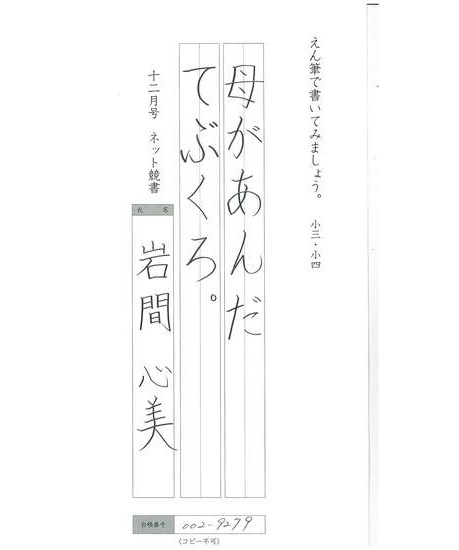 えん筆で書いてみましょう。 小三・小四
母があんだ
てぶくろ。
十二月号 ネット競書
氏名
岩間 心美
台帳番号 002-9279
(コピー不可)